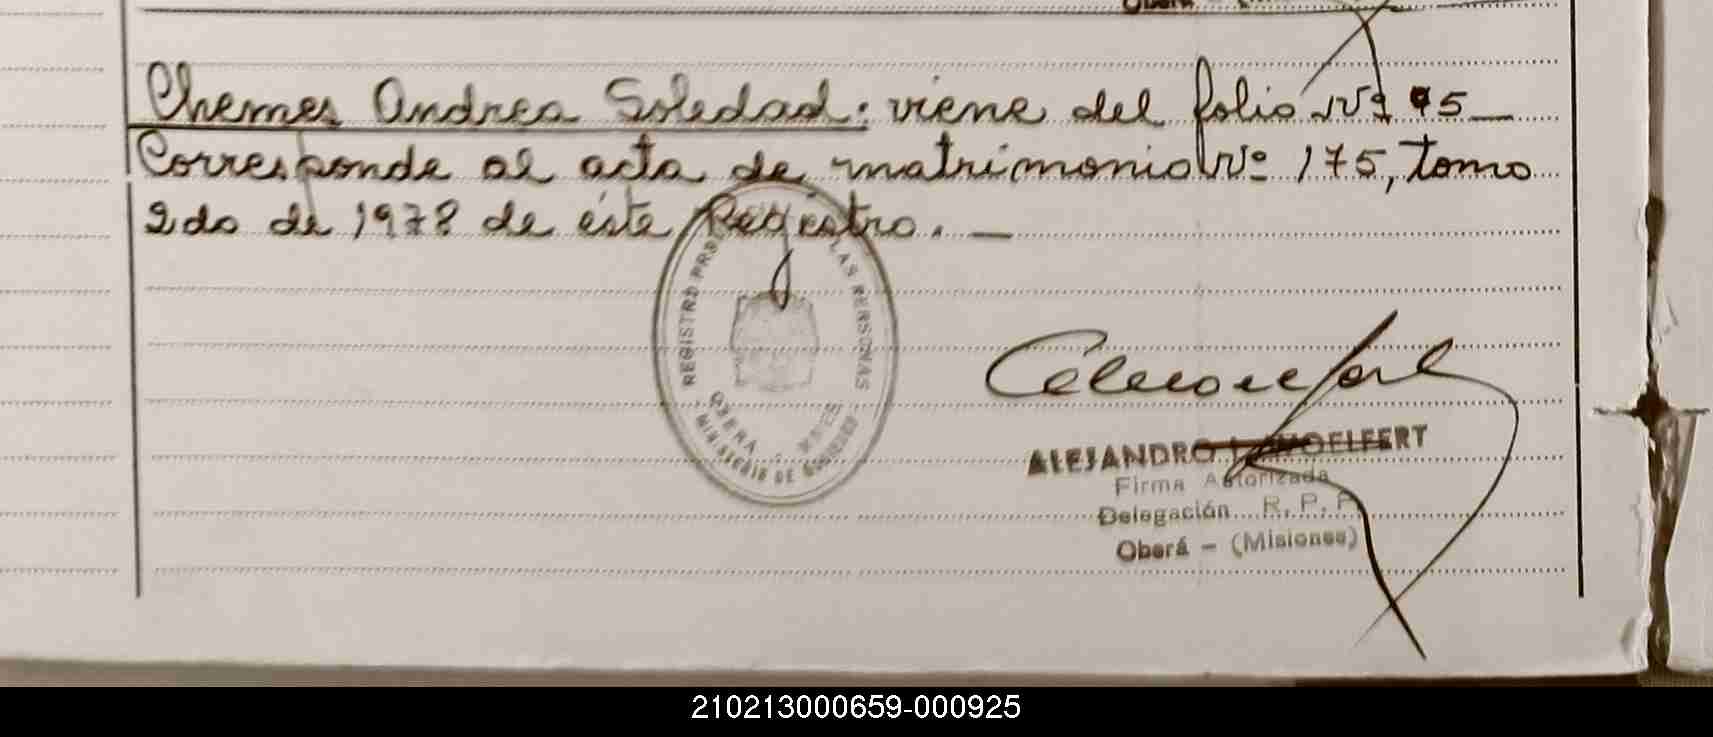 Oberá – (
Chemes Andrea Soledad: viene del folio Nº 95 —
Corresponde al acta de matrimonio Nº 175, tomo
2do de 1978 de éste Registro. —
REGISTRO LAS PERSONAS
OBERA
MINISTERIO DE GOBIERNO
ALEJANDRO
Firma Autorizada
Delegación R. P. P.
Oberá – (Misiones)
210213000659-000925